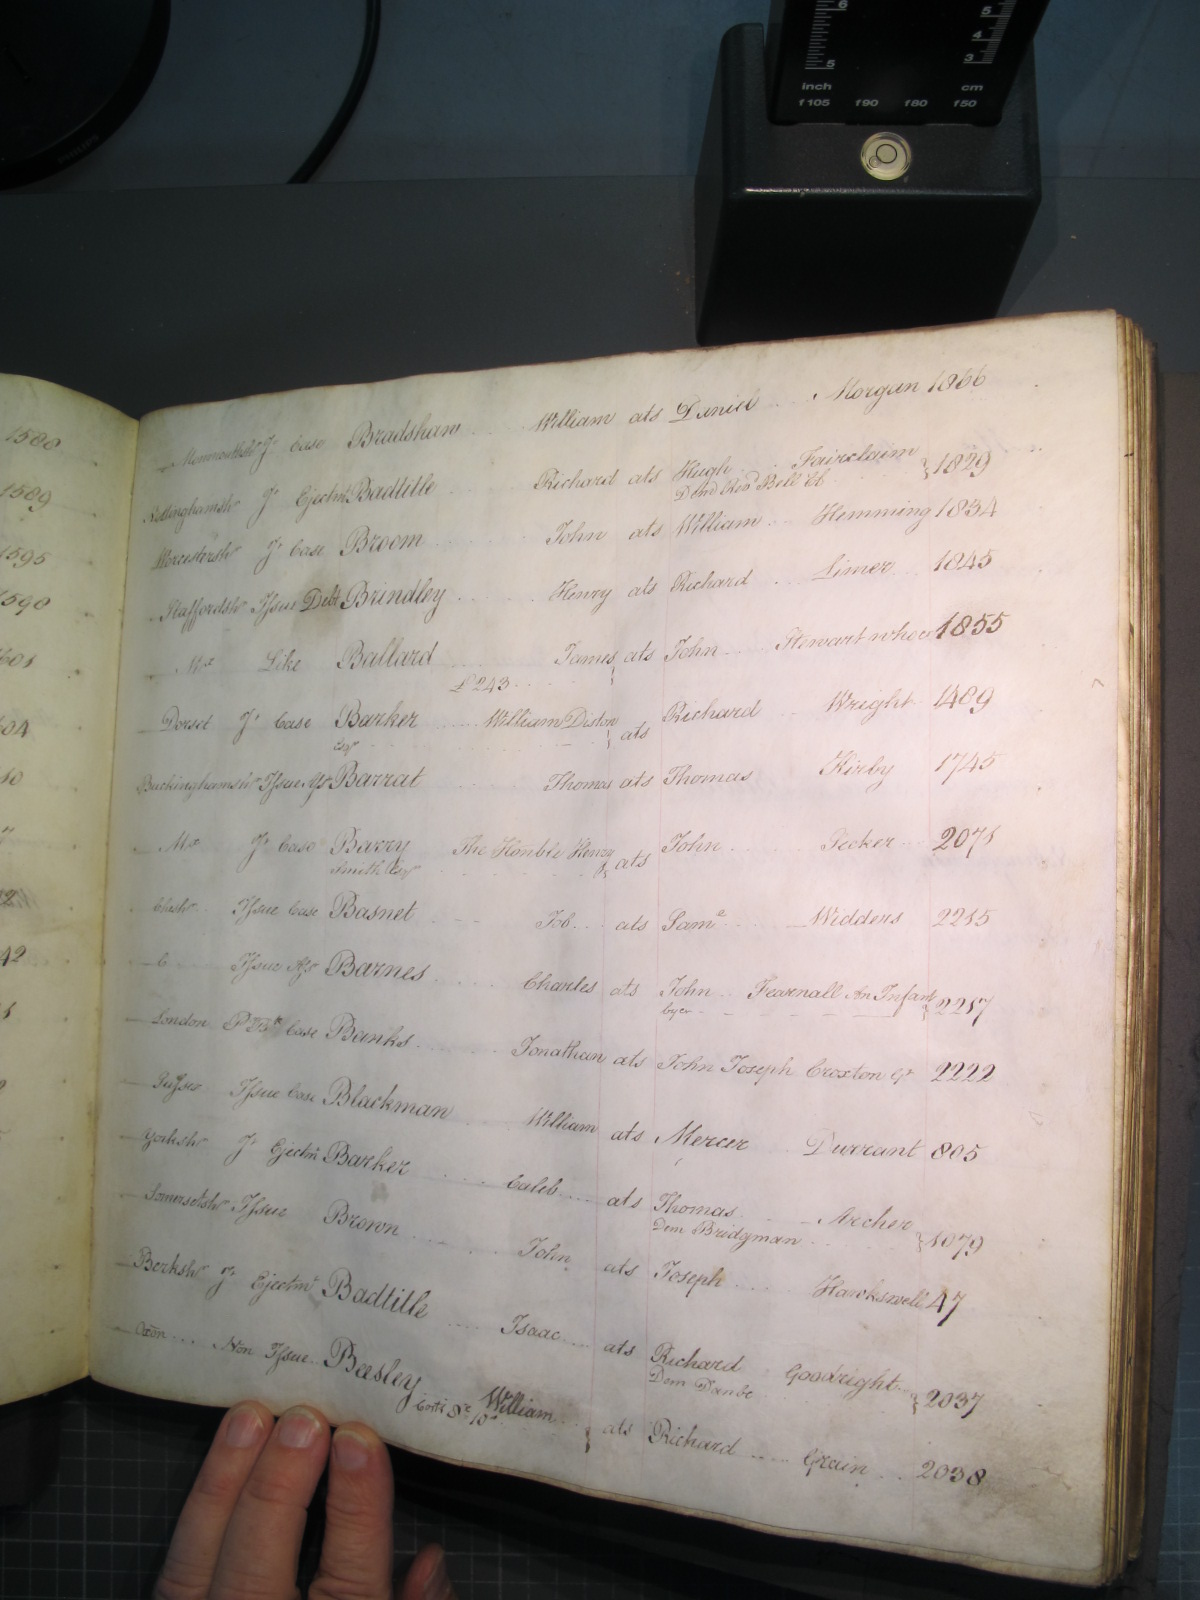 6 5
5 4
3
inch cm
f105 f90 f80 f50
PHILIPS
1588
1589
1595
1590
Monmouthshr Jt Case Bradsham William ats Daniel Morgan 1866
Nottinghamshr Jt Ejectmt Badtitle Richard ats Hugh Fairclaim } 1829
Dem Revd Bell Cl
Worcestershr Jt Case Broom John ats William Hemming 1834
Staffordshr Issue Debt Brindley Henry ats Richard Limer 1845
Mx Like Ballard James } ats John Stewart who &c 1855
£243
Dorset Jt Case Barker William Diston } ats Richard Wright 1409
Esqr
Buckinghamshr Issue Barrat Thomas ats Thomas Kirby 1745
Mx Jt Case Barry The Honble Henry } ats John Tecker 2071
Smith Esqr
Cheshr Issue Case Basnet Job ats Saml Widders 2215
C Issue Barnes Charles ats John Fearnall An Infant } 2217
London Case Banks Jonathan ats John Joseph Croxton Gt 2222
Sussex Issue Case Blackman William ats Mercer Durrant 805
Yorkshr Jt Ejectmt Barker Caleb ats Thomas Archer } 1079
Dem Bridgman
Somersetshr Issue Brown John ats Joseph Hawkswell 47
Berkshr Jt Ejectmt Badtitle Isaac ats Richard Goodright } 2037
Dem
Oxon Non Issue Beesley William } ats Richard Grain 2038
Costs